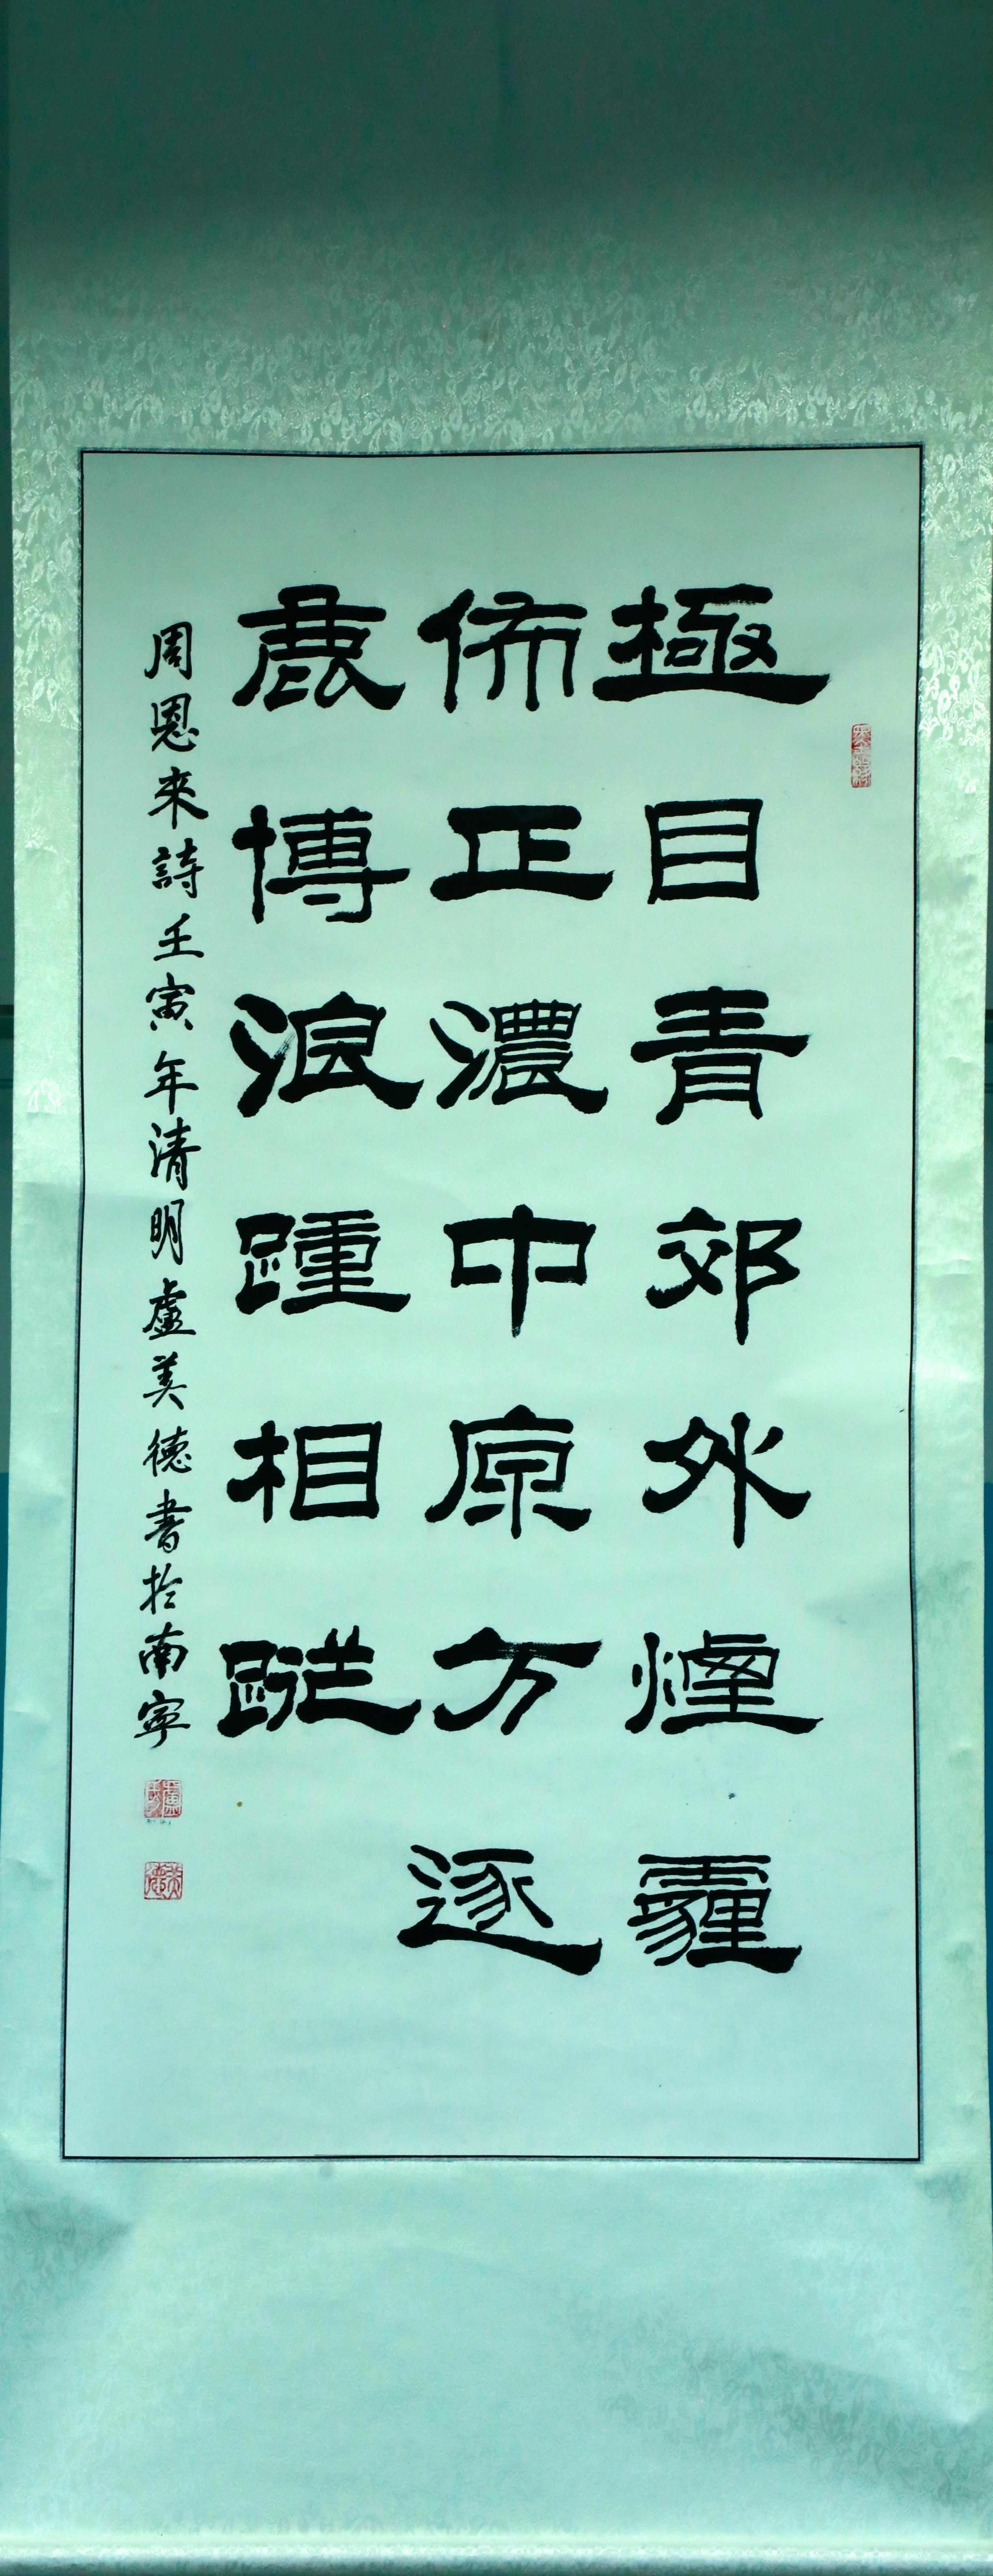 極目青郊外煙霾
佈正濃中原方逐
鹿博浪踵相蹤
周恩來詩壬寅年清明盧美德書於南寧